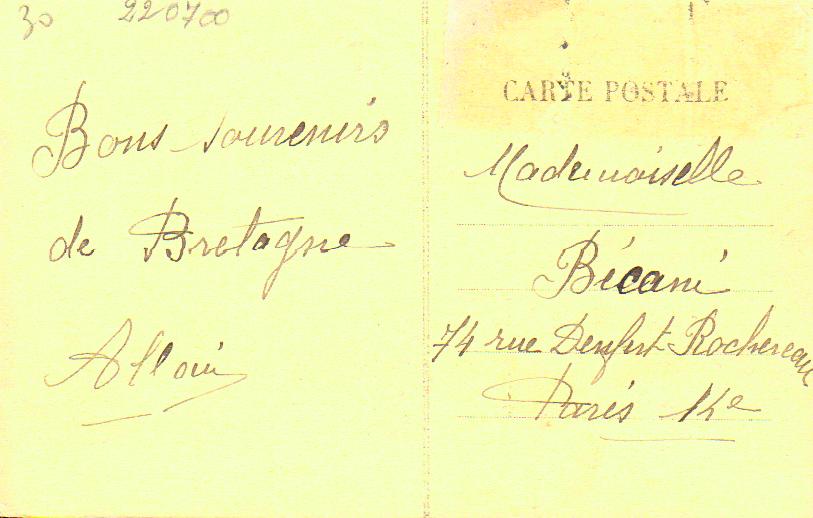 30 220700
Bons souvenirs
de Bretagne
CARTE POSTALE
Mademoiselle
Bécani
74 rue Denfert-Rochereau
Paris 14e